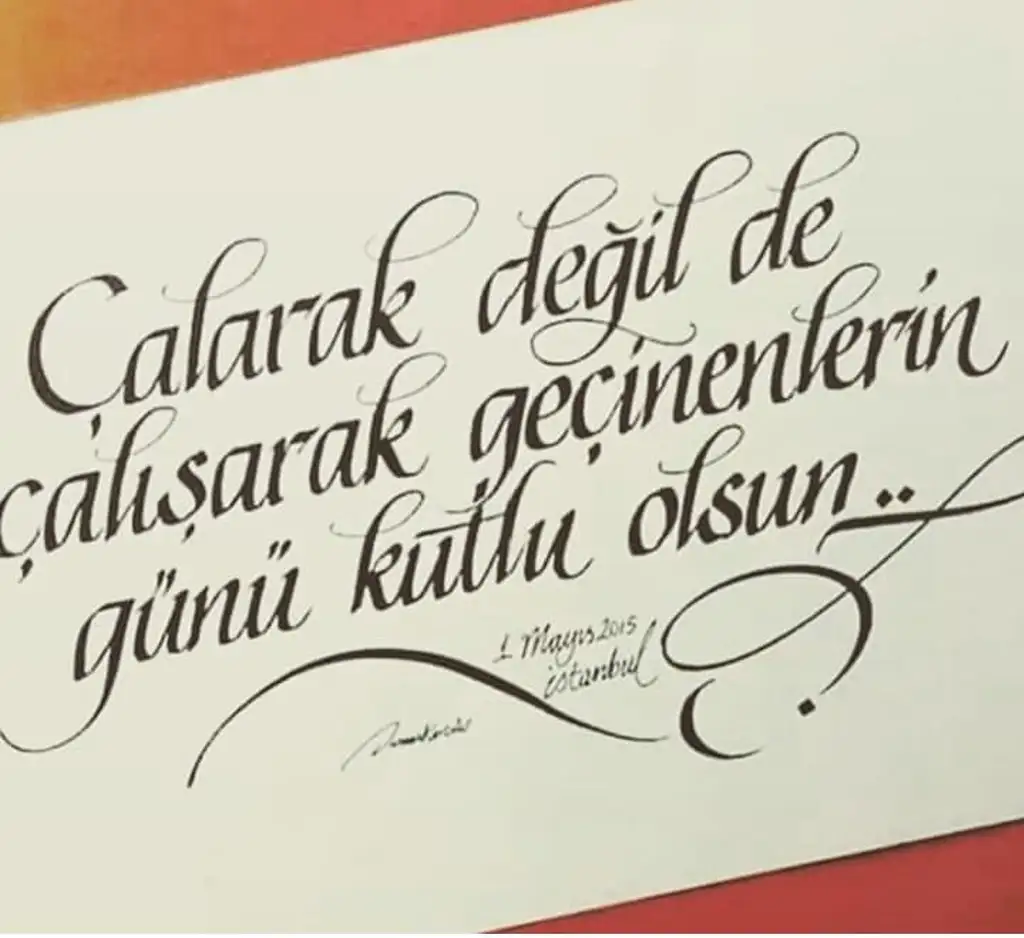 Çalarak değil de
çalışarak geçinenlerin
günü kutlu olsun..
1 Mayıs 2015
istanbul